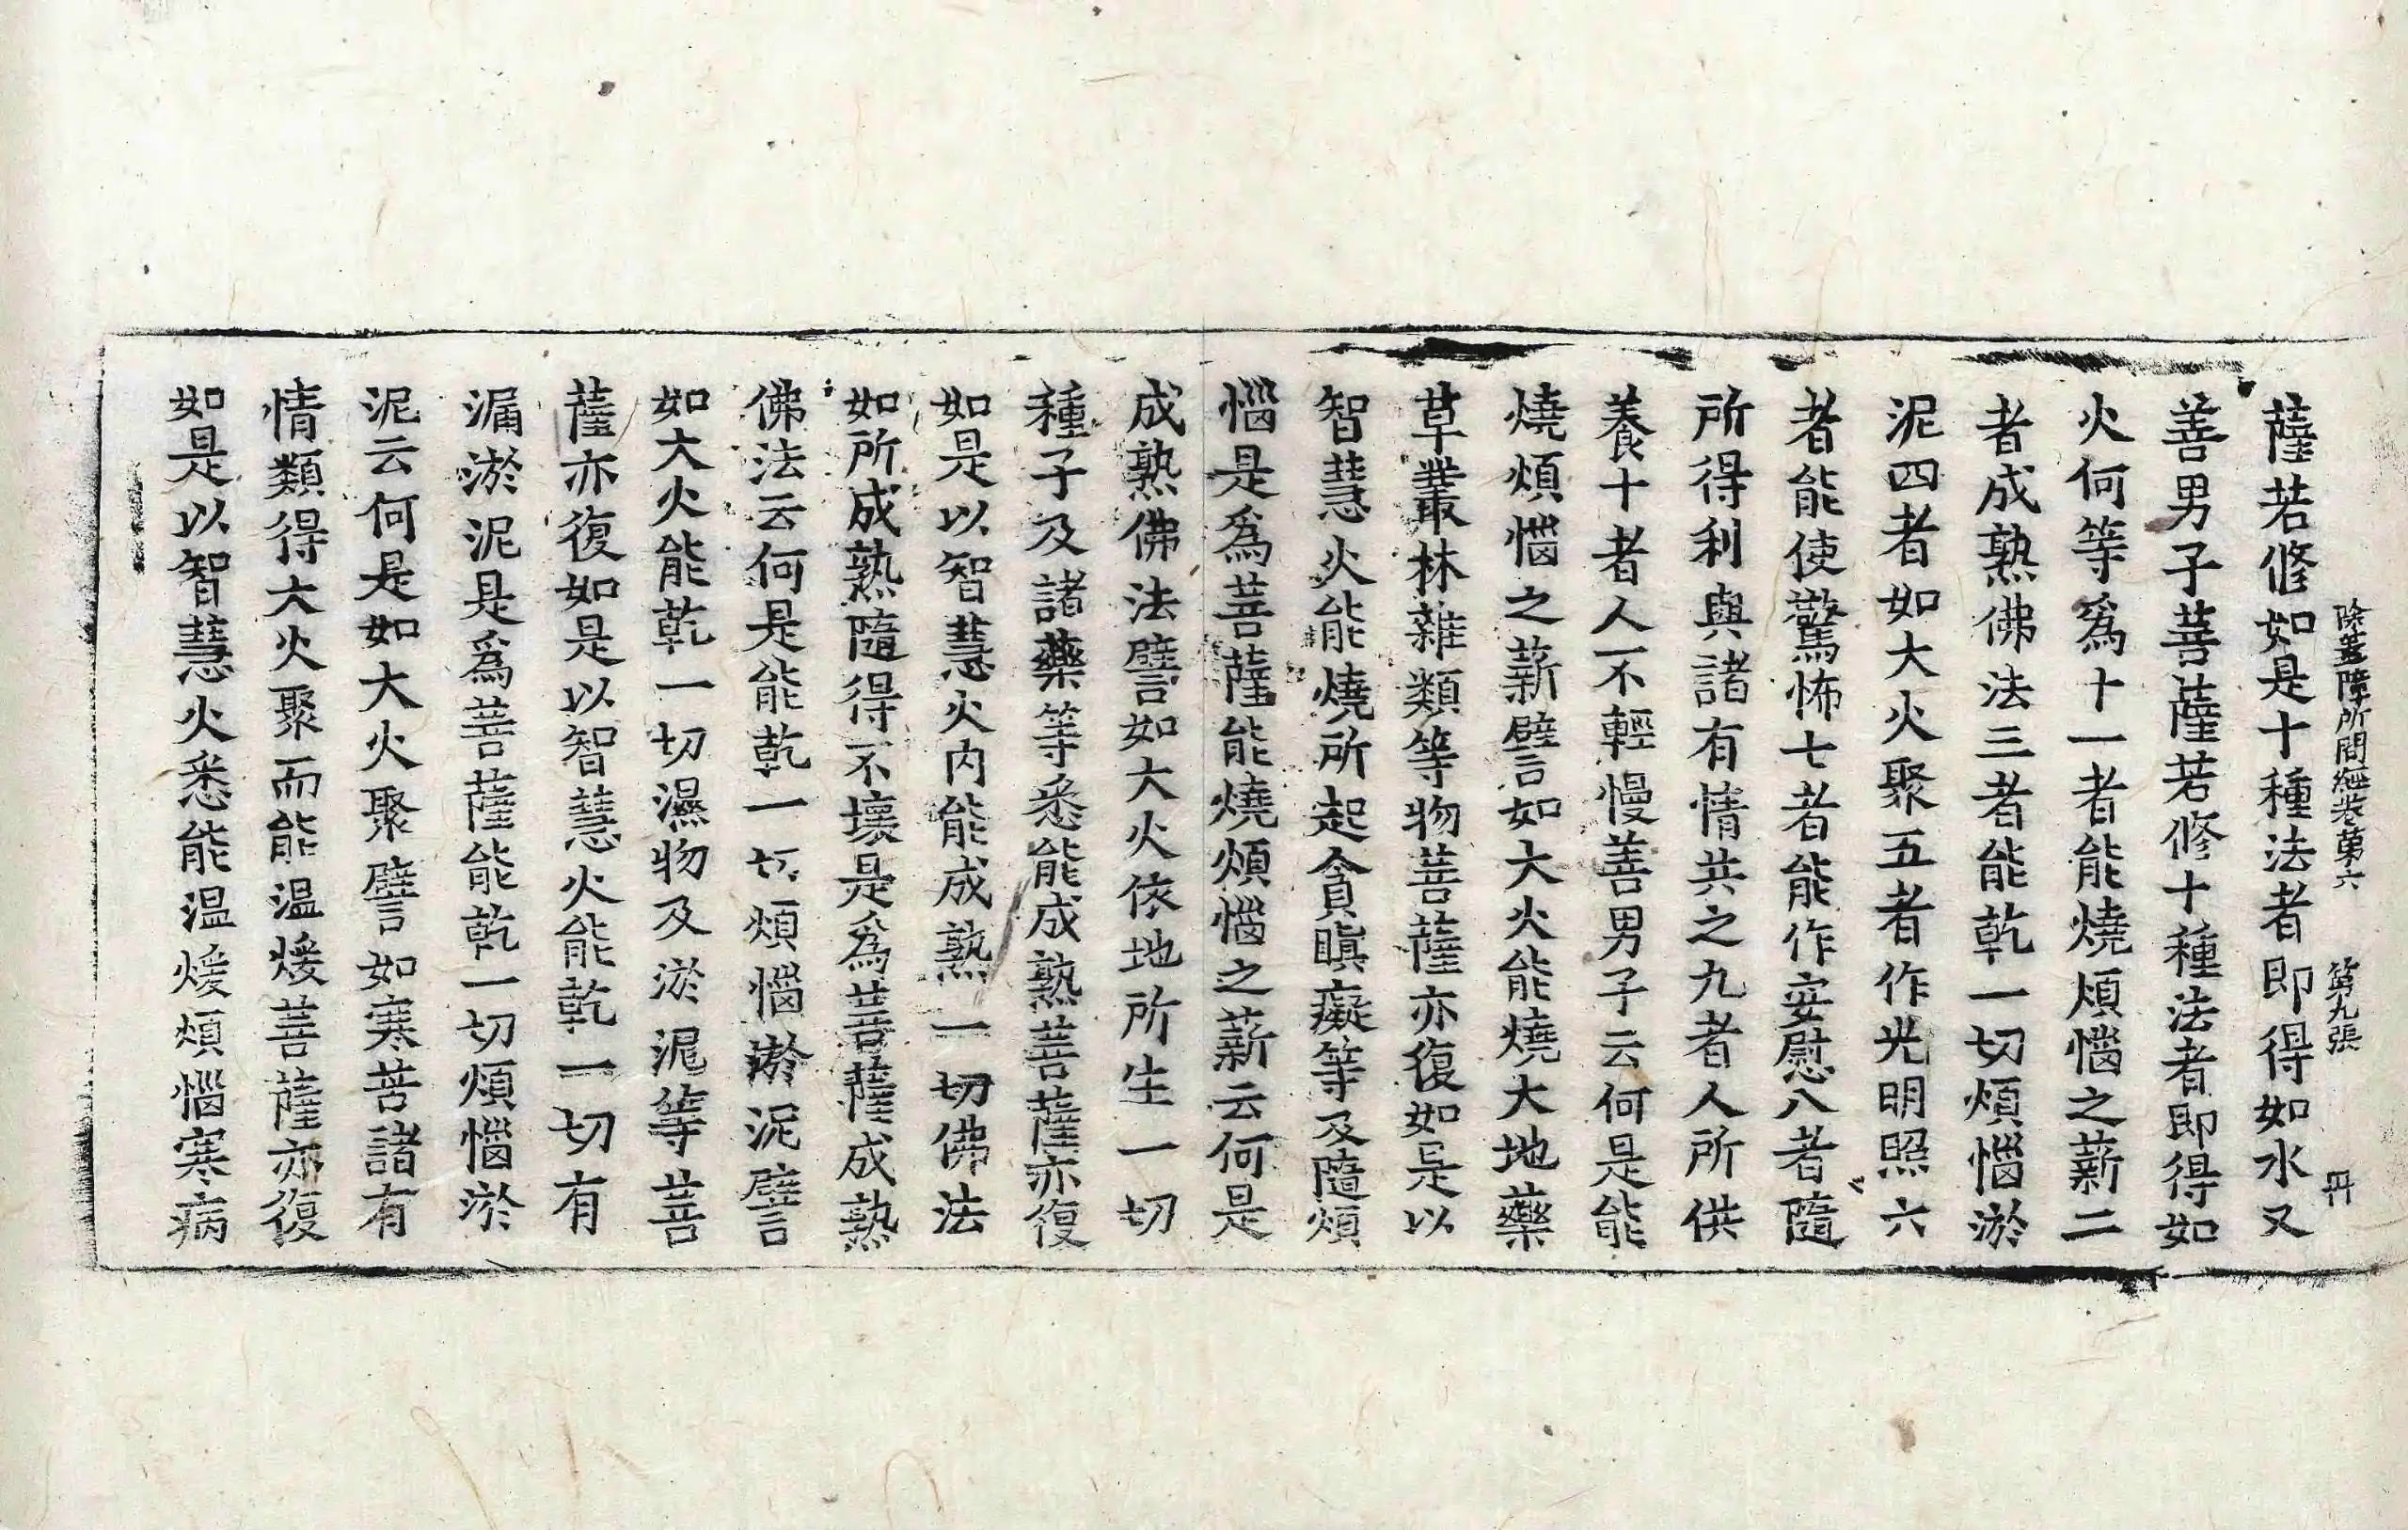 除蓋障所問經卷第六　第九張　冊
薩若修如是十種法者即得如水又
善男子菩薩若修十種法者即得如
火何等爲十一者能燒煩惱之薪二
者成熟佛法三者能乾一切煩惱淤
泥四者如大火聚五者作光明照六
者能使驚怖七者能作安慰八者隨
所得利與諸有情共之九者人所供
養十者人不輕慢善男子云何是能
燒煩惱之薪譬如大火能燒大地藥
草叢林雜類等物菩薩亦復如是以
智慧火能燒所起貪瞋癡等及隨煩
惱是爲菩薩能燒煩惱之薪云何是
成熟佛法譬如大火依地所生一切
種子及諸藥等悉能成熟菩薩亦復
如是以智慧火内能成熟一切佛法
如所成熟隨得不壞是爲菩薩成熟
佛法云何是能乾一切煩惱淤泥譬
如大火能乾一切濕物及淤泥等菩
薩亦復如是以智慧火能乾一切有
漏淤泥是爲菩薩能乾一切煩惱淤
泥云何是如大火聚譬如寒苦諸有
情類得大火聚而能温煖菩薩亦復
如是以智慧火悉能温煖煩惱寒病